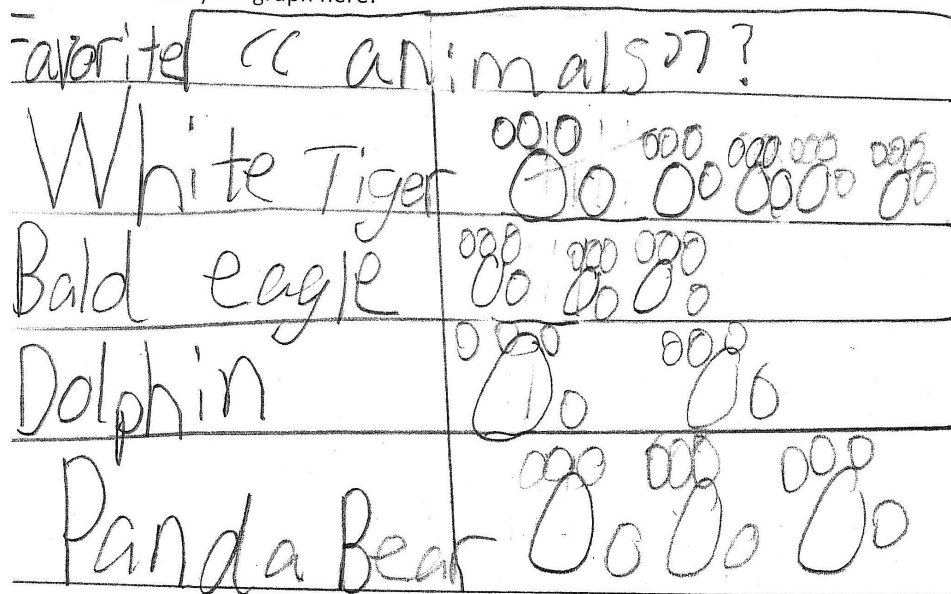 graph here:
Favorite << animals>>?
White Tiger
Bald eagle
Dolphin
Panda Bear